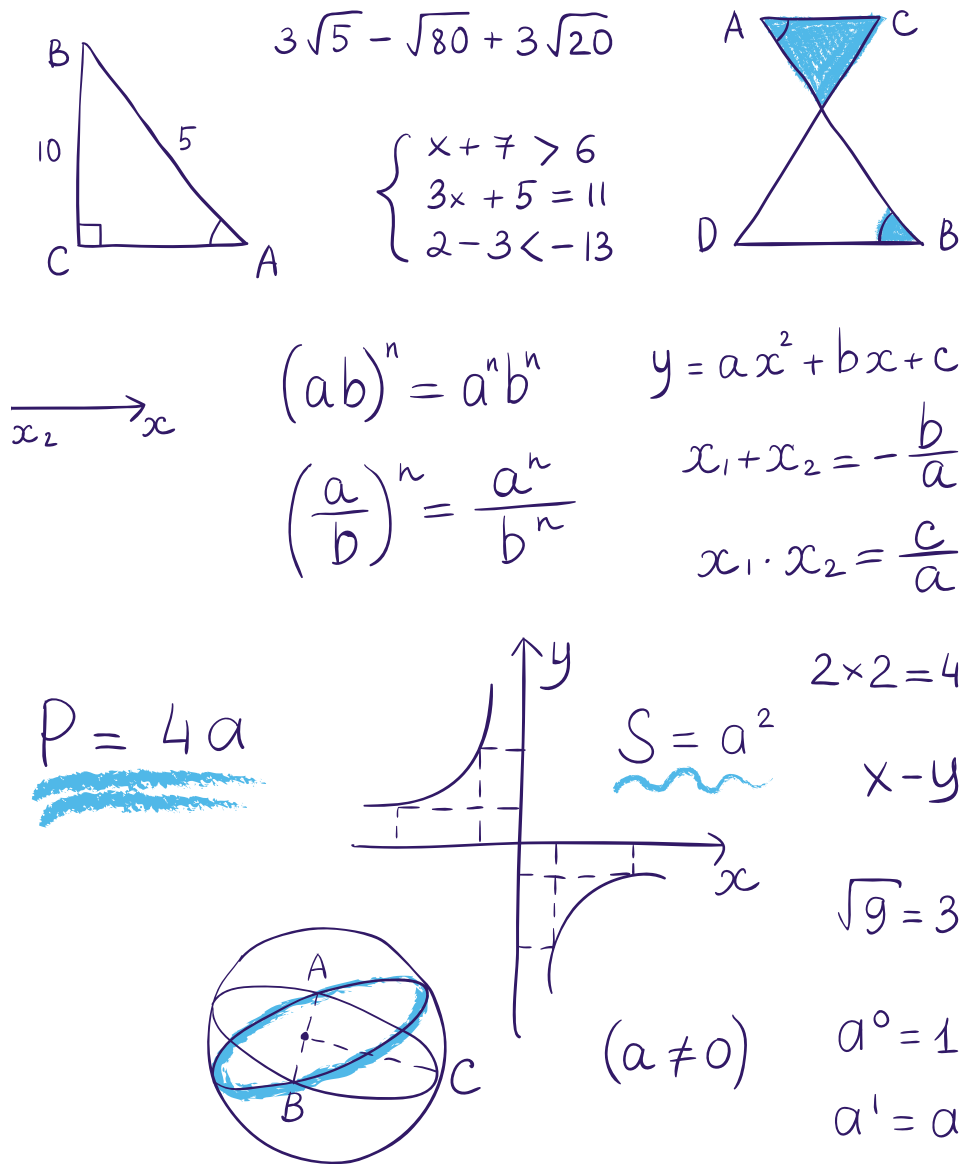 B
10
5
C
A
3√5 − √80 + 3√20
x + 7 > 6
3x + 5 = 11
2 − 3 < − 13
A
C
D
B
x₂
x
(ab)ⁿ = aⁿbⁿ
(a/b)ⁿ = aⁿ/bⁿ
y = ax² + bx + c
x₁ + x₂ = − b/a
x₁ · x₂ = c/a
P = 4a
y
x
S = a²
2 × 2 = 4
x − y
√9 = 3
A
B
C
(a ≠ 0)
a⁰ = 1
a¹ = a